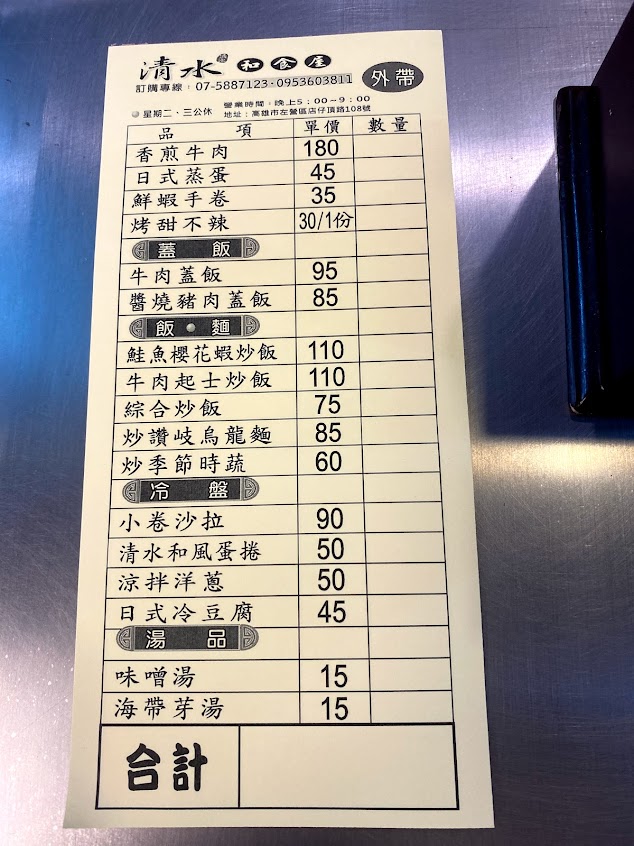 清水 和食屋 外帶
訂購專線：07-5887123·0953603811
營業時間：晚上5：00~9：00
星期二、三公休 地址：高雄市左營區店仔頂路108號
品 項 單價 數量
香煎牛肉 180
日式蒸蛋 45
鮮蝦手卷 35
烤甜不辣 30/1份
蓋 飯
牛肉蓋飯 95
醬燒豬肉蓋飯 85
飯·麵
鮭魚櫻花蝦炒飯 110
牛肉起士炒飯 110
綜合炒飯 75
炒讚岐烏龍麵 85
炒季節時蔬 60
冷 盤
小卷沙拉 90
清水和風蛋捲 50
涼拌洋蔥 50
日式冷豆腐 45
湯 品
味噌湯 15
海帶芽湯 15
合計